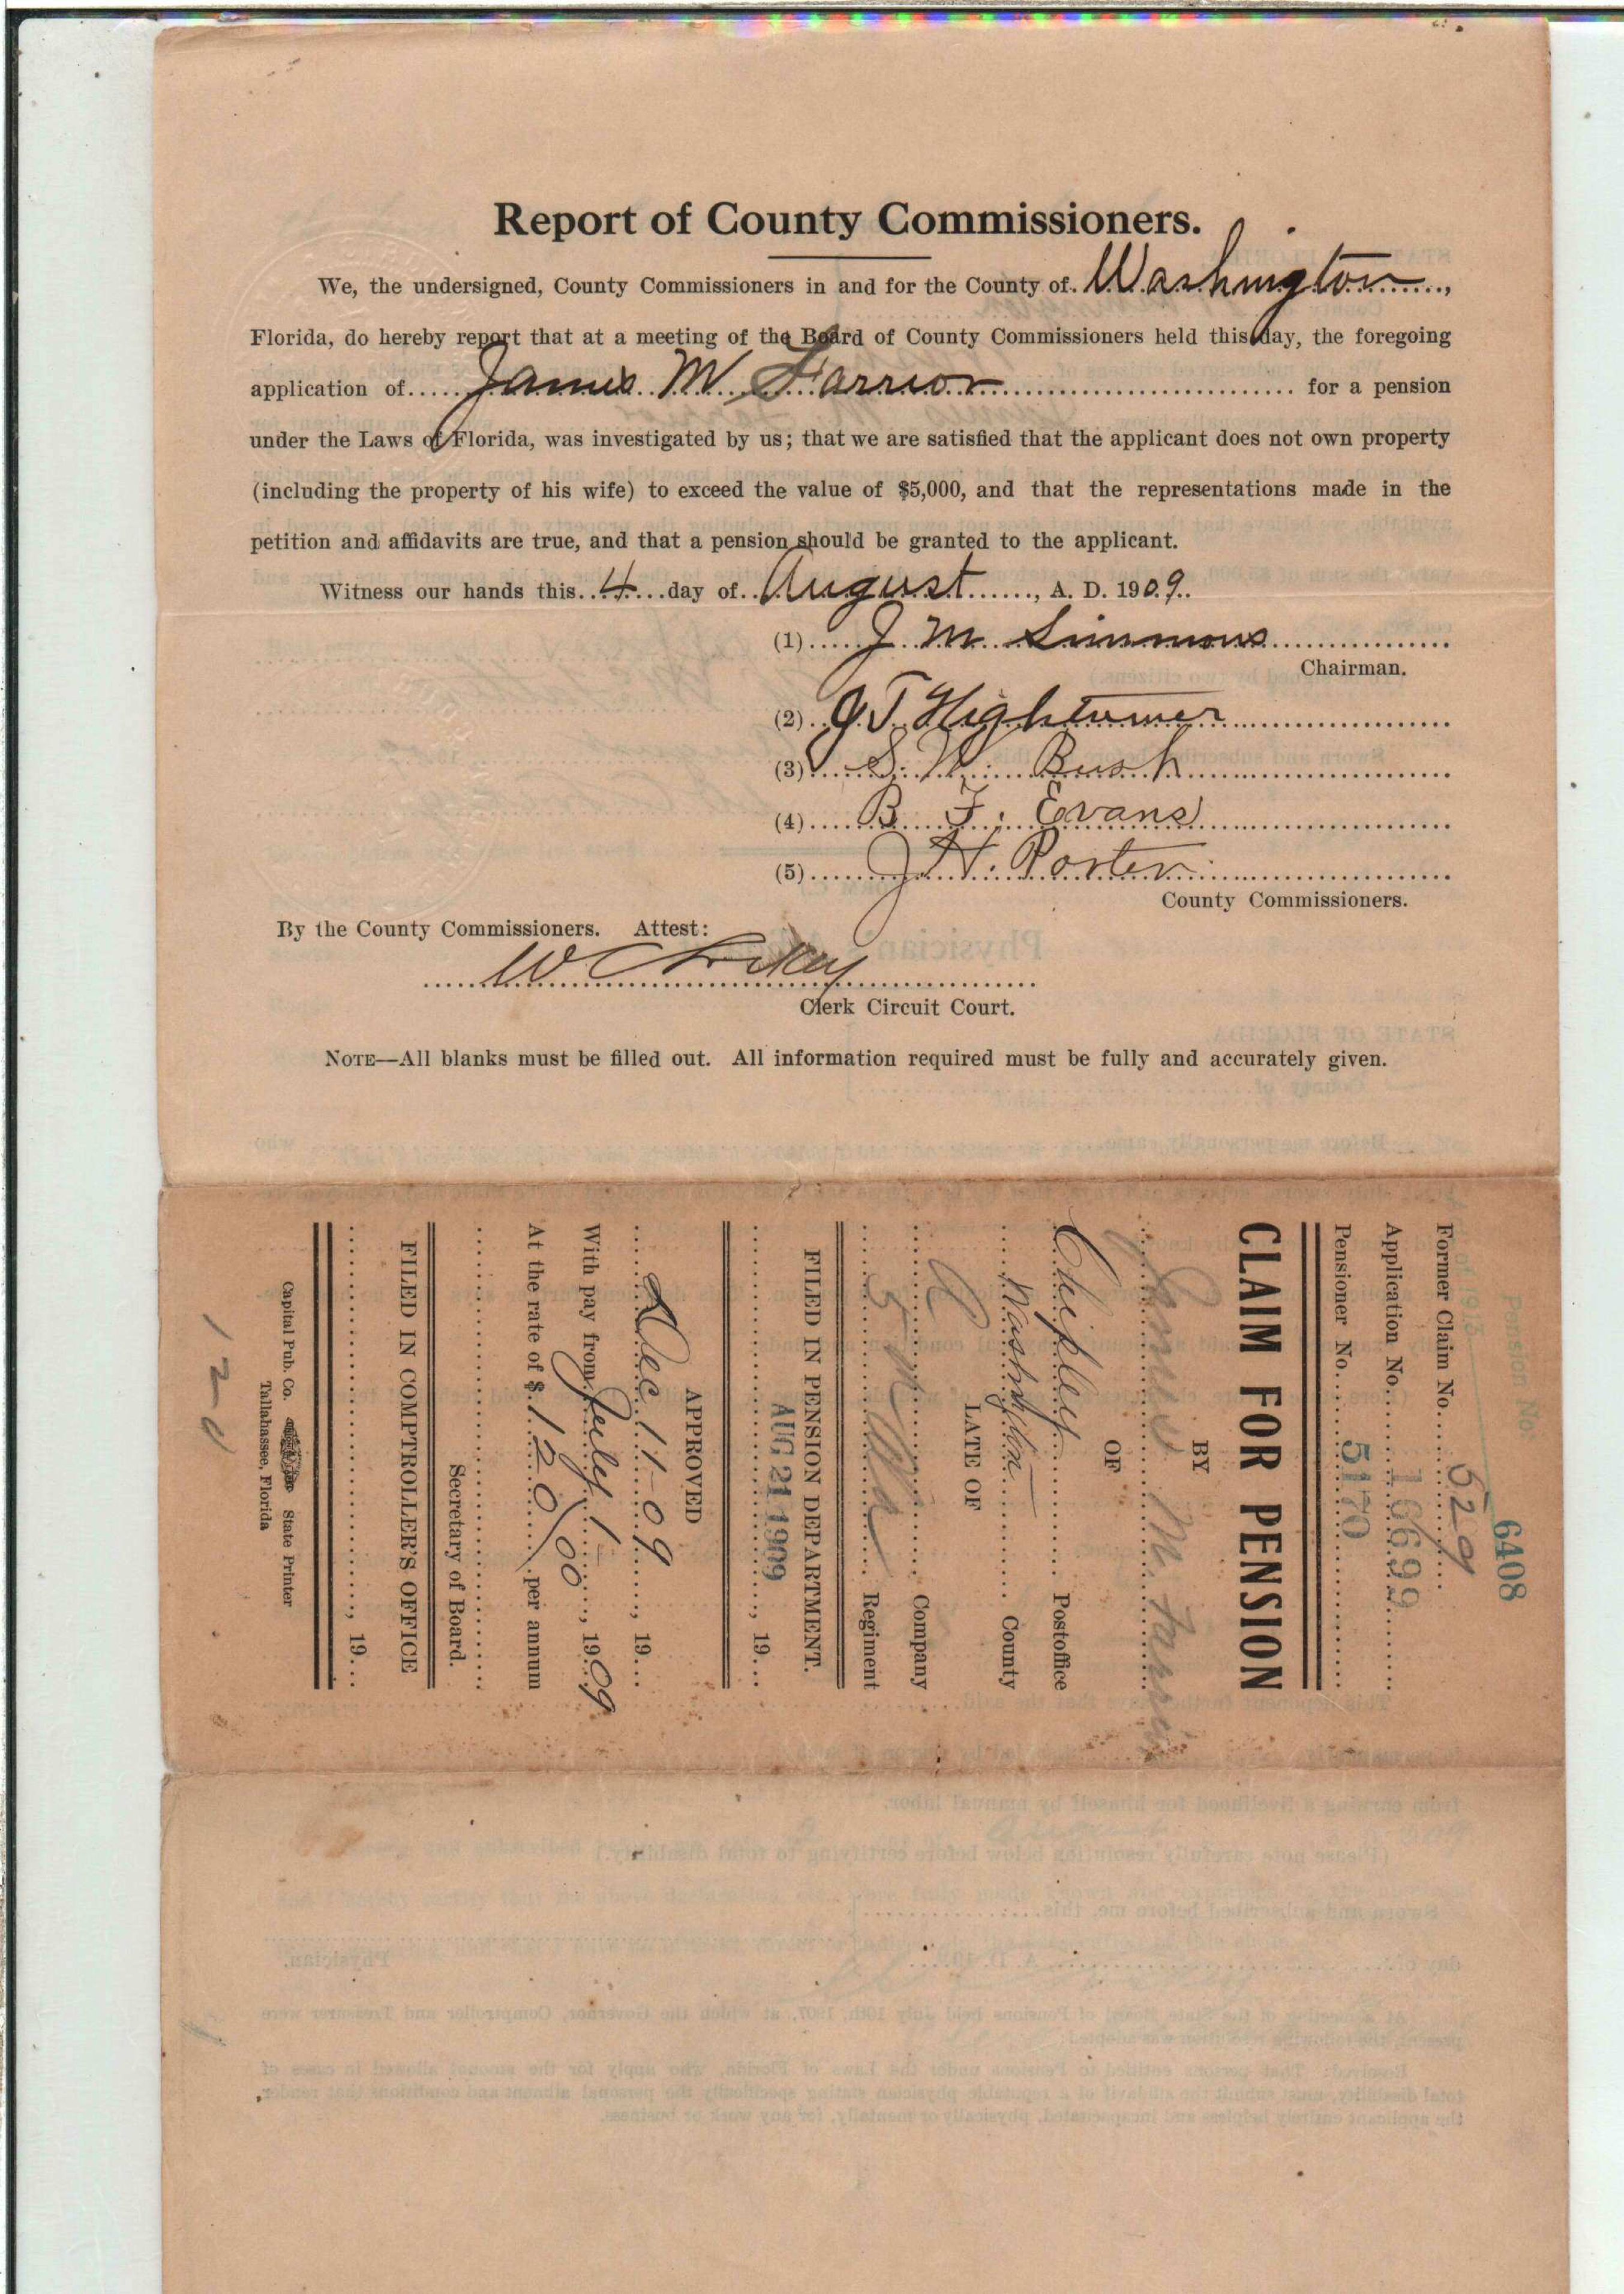 Report of County Commissioners.
We, the undersigned, County Commissioners in and for the County of Washington,
Florida, do hereby report that at a meeting of the Board of County Commissioners held this day, the foregoing
application of James M Farrior for a pension
under the Laws of Florida, was investigated by us; that we are satisfied that the applicant does not own property
(including the property of his wife) to exceed the value of $5,000, and that the representations made in the
petition and affidavits are true, and that a pension should be granted to the applicant.
Witness our hands this 4 day of August, A. D. 1909.
(1) J. M. Simmons
Chairman.
(2) J T Hightower
(3) S. W. Bush
(4) B. F. Evans
(5) J H. Porter
County Commissioners.
By the County Commissioners. Attest:
W C
Clerk Circuit Court.
NOTE—All blanks must be filled out. All information required must be fully and accurately given.
Pension No. 6408
of 1913
Former Claim No. 629
Application No. 16699
Pensioner No. 5170
CLAIM FOR PENSION
BY
James M. Farrior
OF
Chipley Postoffice
Washington County
LATE OF
Company
5 Regiment
FILED IN PENSION DEPARTMENT.
AUG 21 1909, 19
APPROVED
Dec 11-09, 19
With pay from July 1, 1909
At the rate of $120/00 per annum
Secretary of Board.
FILED IN COMPTROLLER'S OFFICE
, 19
Capital Pub. Co. State Printer
Tallahassee, Florida